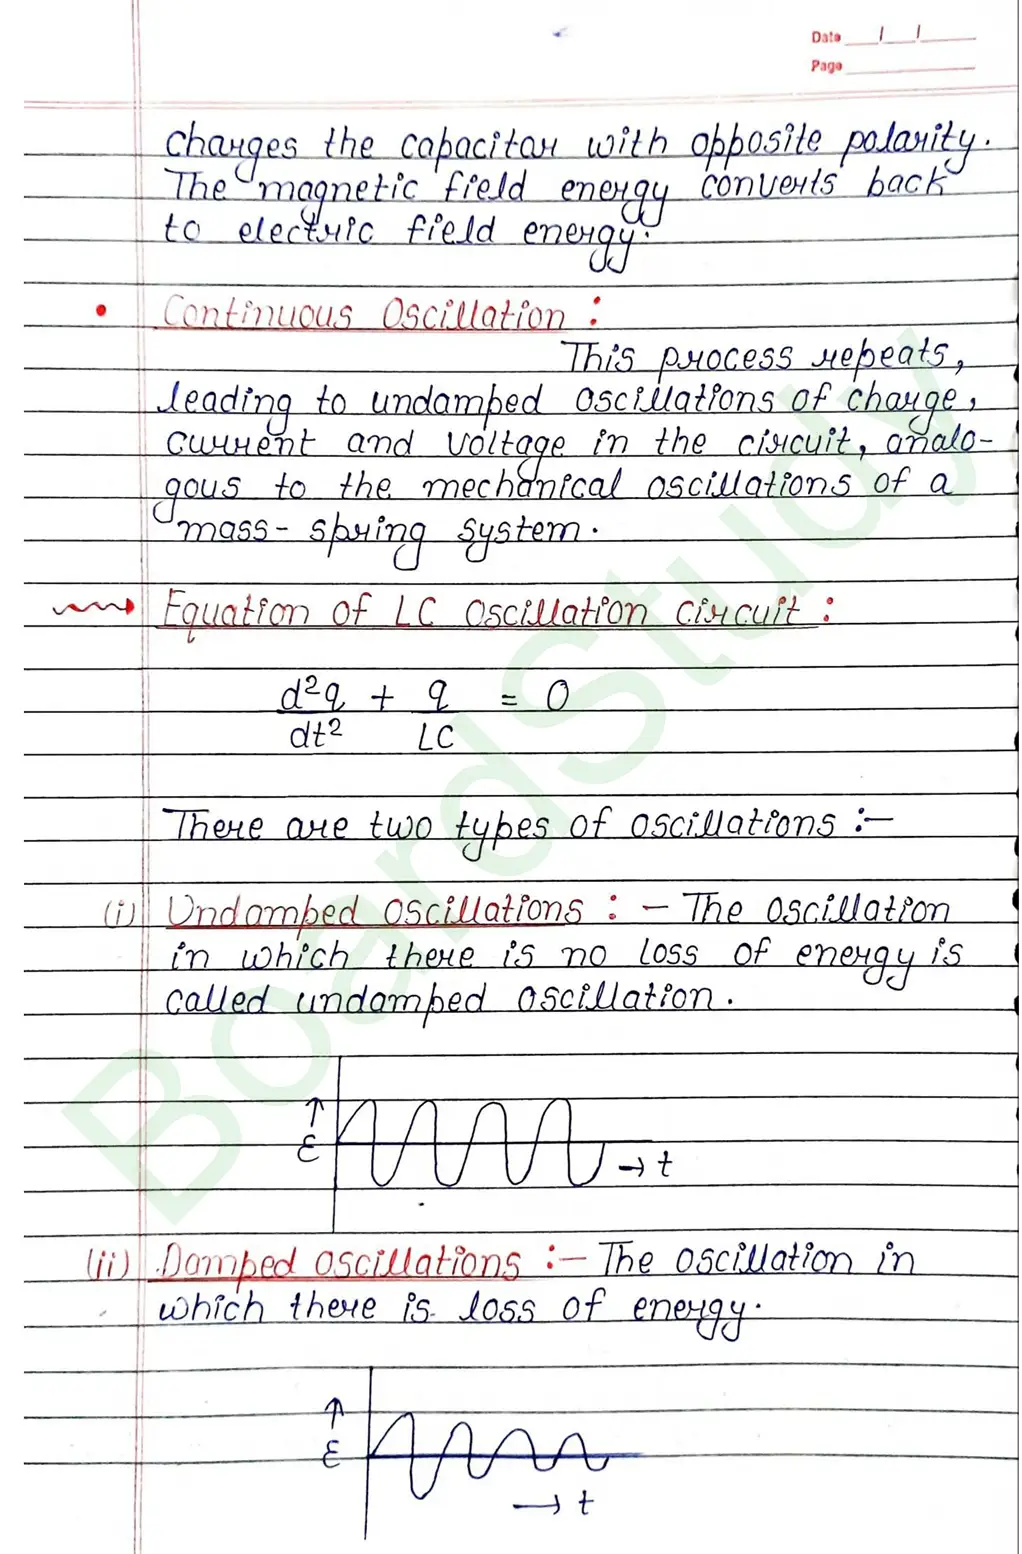 Date / /
Page
charges the capacitor with opposite polarity.
The magnetic field energy converts back
to electric field energy.
• Continuous Oscillation :
This process repeats,
leading to undamped oscillations of charge,
current and voltage in the circuit, analo-
gous to the mechanical oscillations of a
mass-spring system.
Equation of LC Oscillation Circuit :
d²q/dt² + q/LC = 0
There are two types of oscillations :-
(i) Undamped oscillations : - The oscillation
in which there is no loss of energy is
called undamped oscillation.
↑
ε
→ t
(ii) Damped oscillations :- The oscillation in
which there is loss of energy.
↑
ε
→ t
BoardStudy